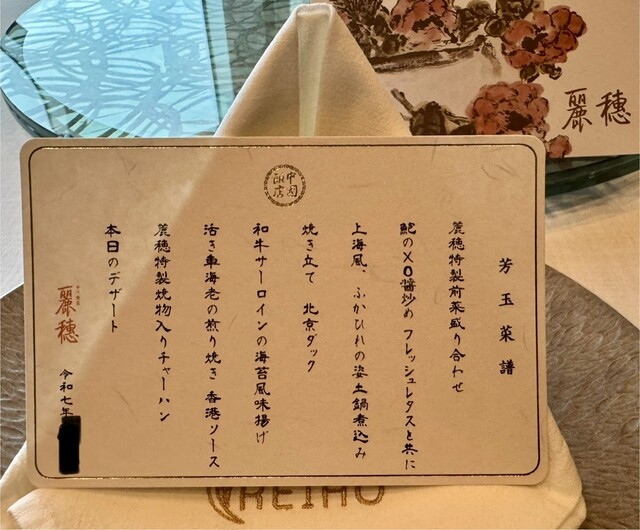 麗穂
中国
飯店
芳玉菜譜
麗穂特製前菜盛り合わせ
鮑のXO醬炒め フレッシュレタスと共に
上海風、ふかひれの姿土鍋煮込み
焼き立て 北京ダック
和牛サーロインの海苔風味揚げ
活き車海老の煎り焼き 香港ソース
麗穂特製焼物入りチャーハン
本日のデザート
麗穂
令和七年
REIHO